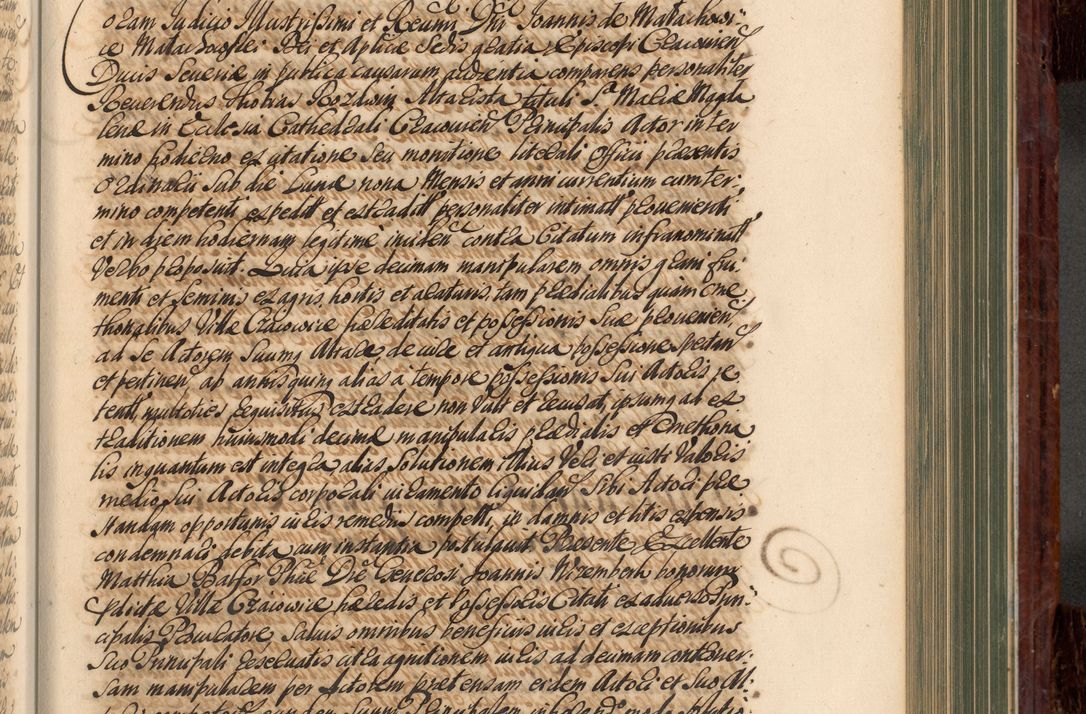 oram Judicio Illustrissimi et Reverñ Dñi Joannis de Małachowi
ce Małachowski Dei et Aplicæ Sedis gratia Episcopi Cracovieñ
Ducis Severiæ in publica causarum audientia comparens personaliter
Reverendus Thomas Rozdwin Altarista tituli S. Mariæ Magda
lenæ in Ecclesia Cathedrali Cracovieñ Principalis Actor in ter
mino hodierno ex citatione seu monitione literali Officii præsentis
Ordinarii sub die Lunæ nona Mensis et anni currentium cum ter-
mino competenti expedit et extradit personaliter intimatt provenienti
et in diem hodiernam legitime inciden contra Citatum infranominatt
Verbo proposuit. Quia ipse decimam manipularem omnis grani fru
menti et seminis ex agris, hortis et araturis, tam prædialibus quam cme
thonalibus Villæ hæreditatis et possessionis suæ provenieñ
ad se Actorem suumq Altare, de iure et antiqua possessione spectañ
et pertineñ, ab annis quinq alias a tempore possessionis sui Actoris pe
tentt, multoties requisitus extradere non vult et recusat, ipsumq ad ex
traditionem huiusmodi decimæ manipularis prædialis et Cmethona
lis inquantum est integra alias solutionem illius veri et iusti valoris
medio sui Actoris corporali iuramento liquidañ sibi Actori præ
standam opportunis iuris remediis compelli, in damnis et litis expensis
condemnari debita cum instantia postulavit. Præsente Excellente
Matthia Balfor Phiæ Dre Generosi Joannis Wizemberk bonorum
pdictæ Villæ hæredis et possessoris Citati ex adverso prin
cipalis Procuratore salvis omnibus beneficiis iuris et exceptionibus
suo Principali reservatis citra agnitionem iuris ad decimam controver
sam manipularem per Actorem prætensam eidem Actori et suo Al-